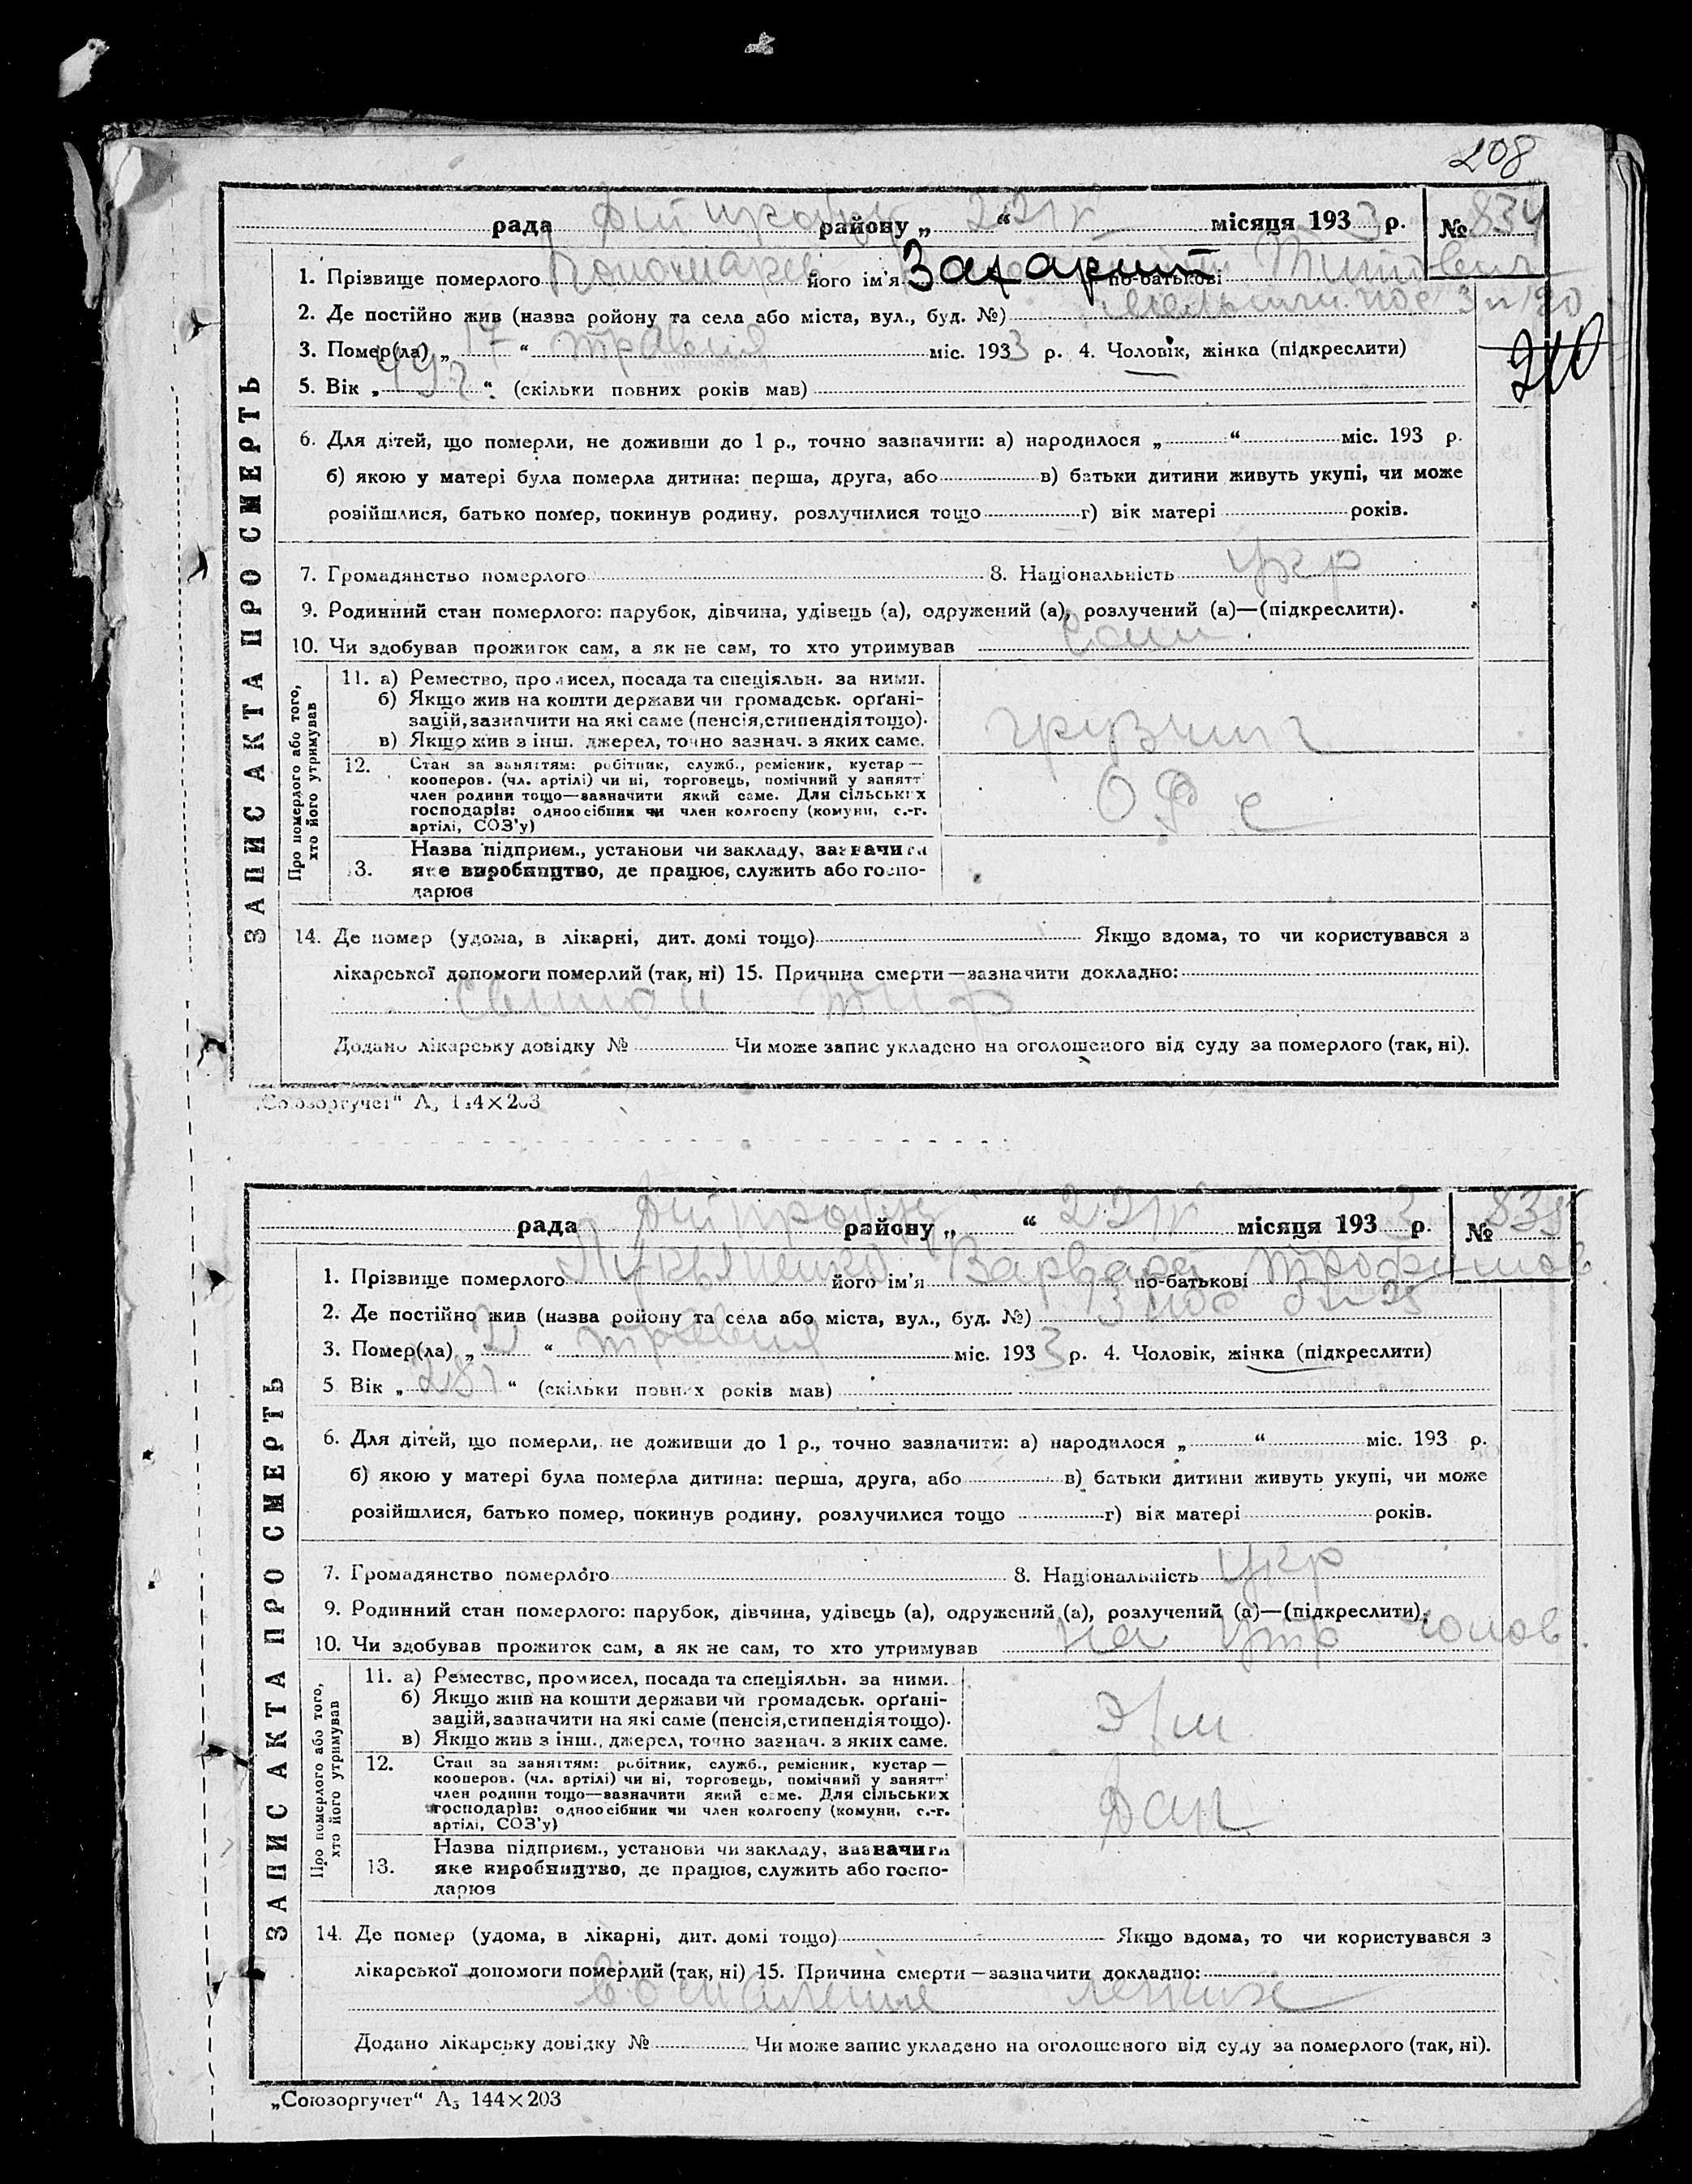 208
рада району „ “ місяця 1933 р. № 834
1. Прізвище померлого Пономарев його ім'я Захарий по-батькові
2. Де постійно жив (назва району та села або міста, вул., буд. №)
3. Помер(ла) „ 17 “ травня міс. 1933 р. 4. Чоловік, жінка (підкреслити)
210
5. Вік „ 49 г “ (скільки повних років мав)
6. Для дітей, що померли, не доживши до 1 р., точно зазначити: а) народилося „ “ міс. 193 р.
б) якою у матері була померла дитина: перша, друга, або в) батьки дитини живуть укупі, чи може
розійшлися, батько помер, покинув родину, розлучилися тощо г) вік матері років.
7. Громадянство померлого 8. Національність укр
9. Родинний стан померлого: парубок, дівчина, удівець (а), одружений (а), розлучений (а)—(підкреслити).
10. Чи здобував прожиток сам, а як не сам, то хто утримував сам
ЗАПИС АКТА ПРО СМЕРТЬ
Про померлого або того, хто його утримував
11. а) Ремество, промисел, посада та спеціяльн. за ними.
б) Якщо жив на кошти держави чи громадськ. орґані-
зацій, зазначити на які саме (пенсія, стипендія тощо).
в) Якщо жив з інш. джерел, точно зазнач. з яких саме.
грузчик
12. Стан за заняттям: робітник, служб., ремісник, кустар —
кооперов. (чл. артілі) чи ні, торговець, помічний у занятт
член родини тощо—зазначити який саме. Для сільських
господарів: одноосібник чи член колгоспу (комуни, с.-г.
артілі, СОЗ'у)
Назва підприєм., установи чи закладу, зазначити
13. яке виробництво, де працює, служить або госпо-
дарює
14. Де помер (удома, в лікарні, дит. домі тощо) Якщо вдома, то чи користувався з
лікарської допомоги померлий (так, ні) 15. Причина смерти—зазначити докладно:
тиф
Додано лікарську довідку № Чи може запис укладено на оголошеного від суду за померлого (так, ні).
„Союзоргучет“ А₅ 144×203
рада району „ “ місяця 1933 р. № 835
1. Прізвище померлого Лукьяненко його ім'я Варвара по-батькові Трофимов
2. Де постійно жив (назва району та села або міста, вул., буд. №)
3. Помер(ла) „ “ травня міс. 1933 р. 4. Чоловік, жінка (підкреслити)
5 Вік „ 28 г “ (скільки повних років мав)
6. Для дітей, що померли, не доживши до 1 р., точно зазначити: а) народилося „ “ міс. 193 р.
б) якою у матері була померла дитина: перша, друга, або в) батьки дитини живуть укупі, чи може
розійшлися, батько помер, покинув родину, розлучилися тощо г) вік матері років.
7. Громадянство померлого 8. Національність укр
9. Родинний стан померлого: парубок, дівчина, удівець (а), одружений (а), розлучений (а)—(підкреслити).
10. Чи здобував прожиток сам, а як не сам, то хто утримував на утр чолов
ЗАПИС АКТА ПРО СМЕРТЬ
Про померлого або того, хто його утримував
11. а) Ремество, промисел, посада та спеціяльн. за ними.
б) Якщо жив на кошти держави чи громадськ. орґані-
зацій, зазначити на які саме (пенсія, стипендія тощо).
в) Якщо жив з інш., джерел, точно зазнач. з яких саме.
12. Стан за заняттям: робітник, служб., ремісник, кустар —
кооперов. (чл. артілі) чи ні, торговець, помічний у занятт
член родини тощо—зазначити який саме. Для сільських
господарів: одноосібник чи член колгоспу (комуни, с.-г.
артілі, СОЗ'у)
Назва підприєм., установи чи закладу, зазначити
13. яке виробництво, де працює, служить або госпо-
дарює
14. Де помер (удома, в лікарні, дит. домі тощо) Якщо вдома, то чи користувався з
лікарської допомоги померлий (так, ні) 15. Причина смерти—зазначити докладно:
Воспаление легких
Додано лікарську довідку № Чи може запис укладено на оголошеного від суду за померлого (так, ні).
„Союзоргучет“ А₅ 144×203